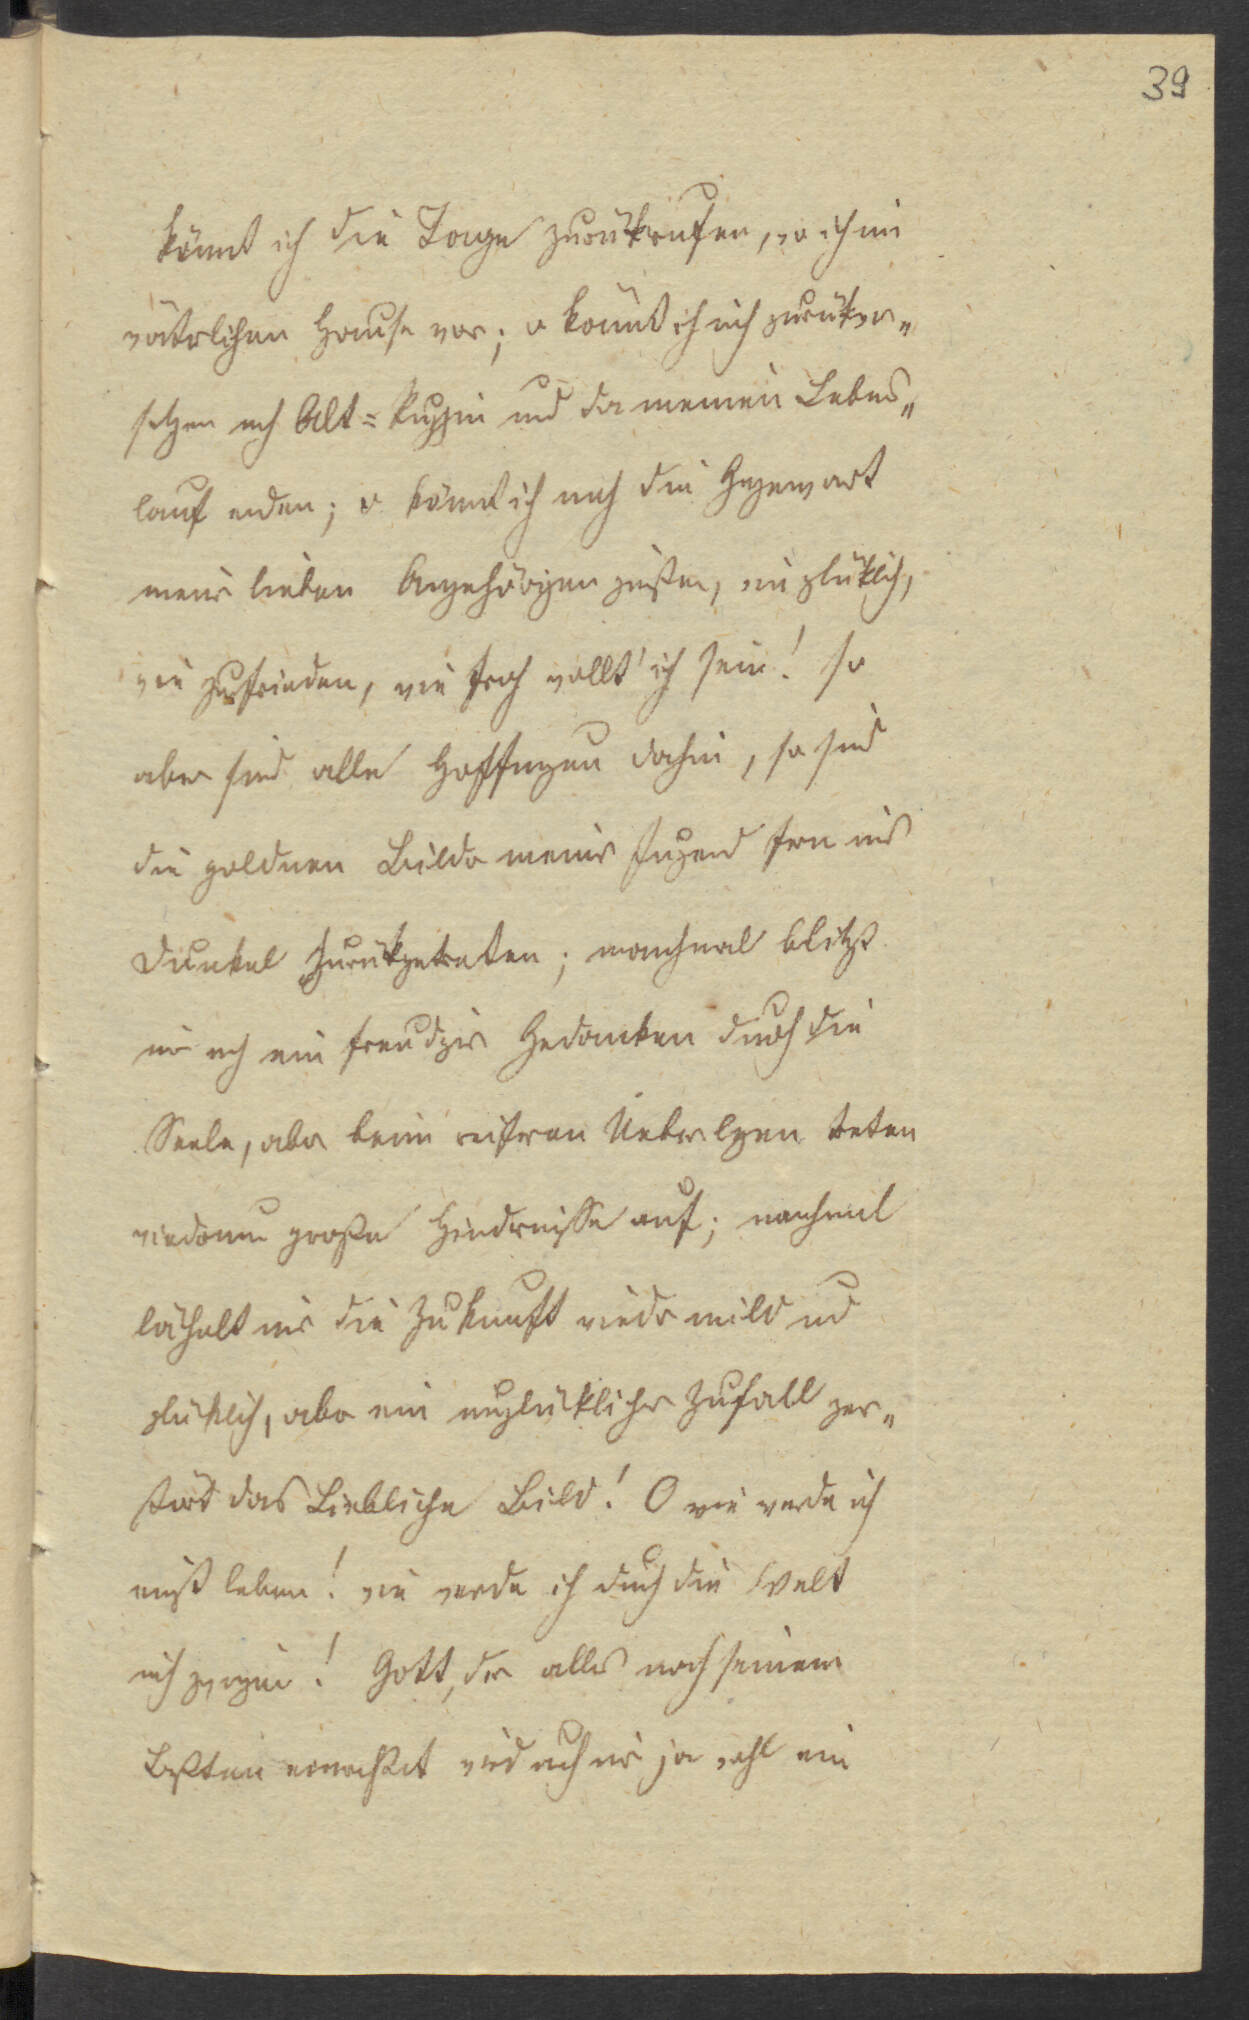 39
könnt ich die Tage zurükrufen, wo ich im
väterlichen Hause war; o könnt ich mich zurükver„
setzen nach Alt=Ruppin und da meinen Lebens„
lauf enden; o könnt ich noch die Gegenwart
meiner lieben Angehörigen genießen, wie glüklich,
wie zufrieden, wie froh wollt' ich sein! So
aber sind alle Hoffnungen dahin, so sind
die goldnen Bilder meiner Jugend fern ins
Dunkel zurükgetreten; manchmal blitzt
mir noch ein freudiger Gedanken durch die
Seele, aber beim reiferen Ueberlegen treten
wiederum große Hindernisse auf; manchmal
lächelt mir die Zukunft wieder mild und
glüklich, aber ein unglücklicher Zufall zer„
stört das Liebliche Bild! O wie werde ich
einst leben! wie werde ich durch die Welt
mich! Gott, der alles nach seinem
Besten verwaltet wird auch mir ja wohl ein